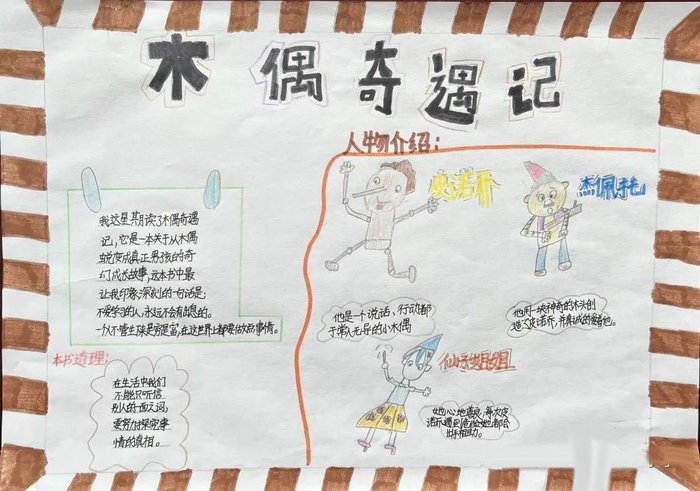 木偶奇遇记
人物介绍：
皮诺乔
杰佩托
我这星期读了木偶奇遇
记，它是一本关于从木偶
蜕变成真正男孩的奇
幻成长故事，这本书中最
让我印象深刻的一句话是：
不爱学习的人，永远不会有出息的。
一个人不管生来是穷是富，在这世界上都要做好事情。
他是一个说话，行动都
于常人无异的小木偶
他用一块神奇的木头创
造了皮诺乔，并真诚的爱着他。
本书道理：
在生活中我们
不能只听信
别人的一面之词，
要努力探究事
情的真相。
仙女姐姐
她心地善良，每次皮
诺乔遇到危险她都会
出来相助。